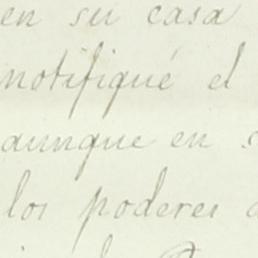 en su casa
notifiqué el
aunque en
los poderes